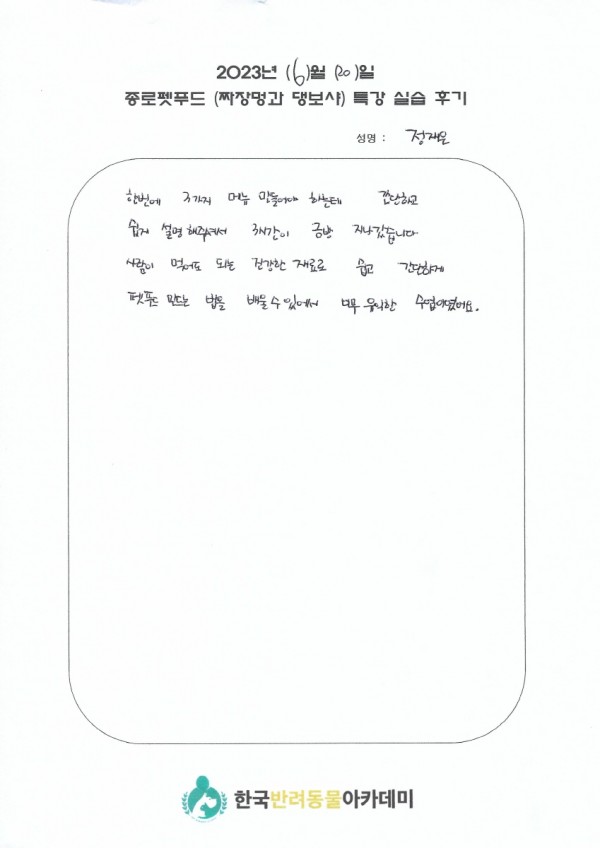 2023년 (6)월 (20)일
종로펫푸드 (짜장멍과 댕보샤) 특강 실습 후기
성명 : 정재은
한번에 3가지 메뉴 만들어야 하는데 간단하고
쉽게 설명 해주셔서 3시간이 금방 지나갔습니다
사람이 먹어도 되는 건강한 재료로 쉽고 간단하게
펫푸드 만드는 법을 배울 수 있어서 너무 유익한 수업이였어요.
한국반려동물아카데미